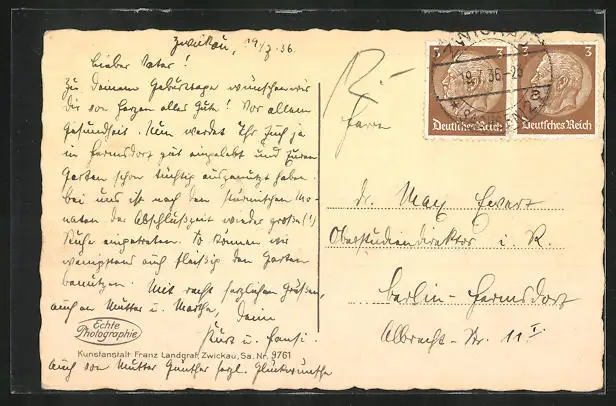 Zwickau, 19/7. 36.
Lieber Vater!
Zu Deinem Geburtstage wünschen wir
Dir von Herzen alles Gute! Vor allem
Gesundheit. Nun werdet Ihr Euch ja
in Hermsdorf gut eingelebt und Euren
Garten schon tüchtig ausgenutzt haben.
Bei uns ist nach den stürmischen Mo-
naten der Abschlußzeit wieder große (!)
Ruhe eingetreten. So können wir
wenigstens auch fleißig den Garten
benutzen. Mit recht herzlichen Grüßen,
auch an Mutter u. Martha, Dein
Kurt u. Hansi.
Auch von Mutter Günther herzl. Glückwünsche
Echte
Photographie
Kunstanstalt Franz Landgraf, Zwickau, Sa. Nr. 9761
3
3
Deutsches Reich
Deutsches Reich
ZWICKAU
19.7.36
Herrn
Dr. Max Ewert
Oberstudiendirektor i. R.
Berlin-Hermsdorf
Albrecht-Str. 11 I